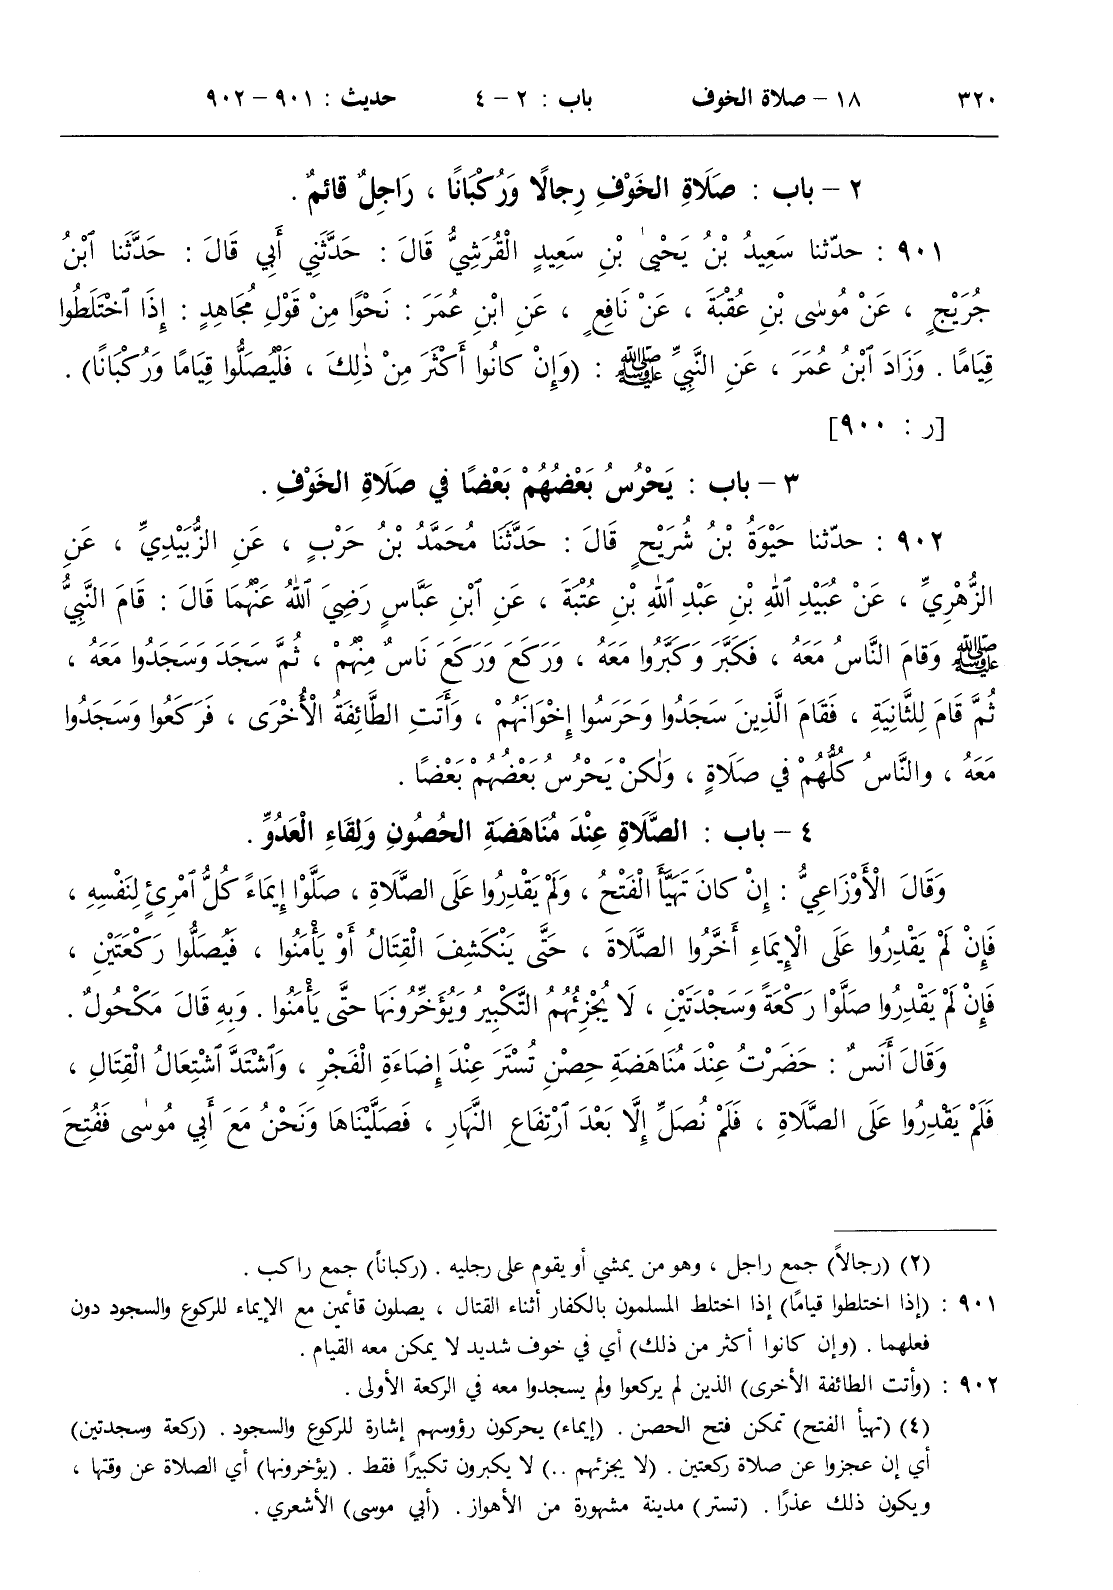 ٣٢٠ ١٨ – صلاة الخوف باب : ٢ – ٤ حديث : ٩٠١ – ٩٠٢
٢ – باب : صَلَاةِ الخَوْفِ رِجالًا وَرُكْبَانًا ، رَاجِلٌ قائمٌ .
٩٠١ : حدّثنا سَعِيدُ بْنُ يَحْيىٰ بْنِ سَعِيدٍ الْقُرَشِيُّ قَالَ : حَدَّثَنِي أَبِي قَالَ : حَدَّثَنا ٱبْنُ
جُرَيْجٍ ، عَنْ مُوسٰى بْنِ عُقْبَةَ ، عَنْ نَافِعٍ ، عَنِ ابْنِ عُمَرَ : نَحْوًا مِنْ قَوْلِ مُجَاهِدٍ : إِذَا ٱخْتَلَطُوا
قِيَامًا . وَزَادَ ٱبْنُ عُمَرَ ، عَنِ النَّبِيِّ ﷺ : (وَإِنْ كانُوا أَكْثَرَ مِنْ ذٰلِكَ ، فَلْيُصَلُّوا قِيَامًا وَرُكْبَانًا) .
[ر : ٩٠٠]
٣ – باب : يَحْرُسُ بَعْضُهُمْ بَعْضًا في صَلَاةِ الخَوْفِ .
٩٠٢ : حدّثنا حَيْوَةُ بْنُ شُرَيْحٍ قَالَ : حَدَّثَنَا مُحَمَّدُ بْنُ حَرْبٍ ، عَنِ الزُّبَيْدِيِّ ، عَنِ
الزُّهْرِيِّ ، عَنْ عُبَيْدِ ٱللهِ بْنِ عَبْدِ ٱللهِ بْنِ عُتْبَةَ ، عَنِ ٱبْنِ عَبَّاسٍ رَضِيَ ٱللهُ عَنْهُمَا قَالَ : قَامَ النَّبِيُّ
ﷺ وَقامَ النَّاسُ مَعَهُ ، فَكَبَّرَ وَكَبَّرُوا مَعَهُ ، وَرَكَعَ وَرَكَعَ نَاسٌ مِنْهُمْ ، ثُمَّ سَجَدَ وَسَجَدُوا مَعَهُ ،
ثُمَّ قَامَ لِلثَّانِيَةِ ، فَقَامَ الَّذِينَ سَجَدُوا وَحَرَسُوا إِخْوَانَهُمْ ، وَأَتَتِ الطَّائِفَةُ الْأُخْرَى ، فَرَكَعُوا وَسَجَدُوا
مَعَهُ ، والنَّاسُ كُلُّهُمْ في صَلَاةٍ ، وَلٰكِنْ يَحْرُسُ بَعْضُهُمْ بَعْضًا .
٤ – باب : الصَّلَاةِ عِنْدَ مُنَاهَضَةِ الحُصُونِ وَلِقَاءِ الْعَدُوِّ .
وَقَالَ الْأَوْزَاعِيُّ : إِنْ كانَ تَهَيَّأَ الْفَتْحُ ، وَلَمْ يَقْدِرُوا عَلَى الصَّلَاةِ ، صَلَّوْا إِيمَاءً كُلُّ ٱمْرِئٍ لِنَفْسِهِ ،
فَإِنْ لَمْ يَقْدِرُوا عَلَى الْإِيمَاءِ أَخَّرُوا الصَّلَاةَ ، حَتَّى يَنْكَشِفَ الْقِتَالُ أَوْ يَأْمَنُوا ، فَيُصَلُّوا رَكْعَتَيْنِ ،
فَإِنْ لَمْ يَقْدِرُوا صَلَّوْا رَكْعَةً وَسَجْدَتَيْنِ ، لَا يُجْزِئُهُمُ التَّكْبِيرُ وَيُؤَخِّرُونَهَا حَتَّى يَأْمَنُوا . وَبِهِ قَالَ مَكْحُولٌ .
وَقَالَ أَنَسٌ : حَضَرْتُ عِنْدَ مُنَاهَضَةِ حِصْنِ تُسْتَرَ عِنْدَ إِضَاءَةِ الْفَجْرِ ، وَٱشْتَدَّ ٱشْتِعَالُ الْقِتَالِ ،
فَلَمْ يَقْدِرُوا عَلَى الصَّلَاةِ ، فَلَمْ نُصَلِّ إِلَّا بَعْدَ ٱرْتِفَاعِ النَّهَارِ ، فَصَلَّيْنَاهَا وَنَحْنُ مَعَ أَبِي مُوسٰى فَفُتِحَ
(٢) (رجالاً) جمع راجل ، وهو من يمشي أو يقوم على رجليه . (ركباناً) جمع راكب .
٩٠١ : (إذا اختلطوا قيامًا) إذا اختلط المسلمون بالكفار أثناء القتال ، يصلون قائمين مع الإيماء للركوع والسجود دون
فعلهما . (وإن كانوا أكثر من ذلك) أي في خوف شديد لا يمكن معه القيام .
٩٠٢ : (وأتت الطائفة الأخرى) الذين لم يركعوا ولم يسجدوا معه في الركعة الأولى .
(٤) (تهيأ الفتح) تمكن فتح الحصن . (إيماء) يحركون رؤوسهم إشارة للركوع والسجود . (ركعة وسجدتين)
أي إن عجزوا عن صلاة ركعتين . (لا يجزئهم ..) لا يكبرون تكبيرًا فقط . (يؤخرونها) أي الصلاة عن وقتها ،
ويكون ذلك عذرًا . (تستر) مدينة مشهورة من الأهواز . (أبي موسى) الأشعري .